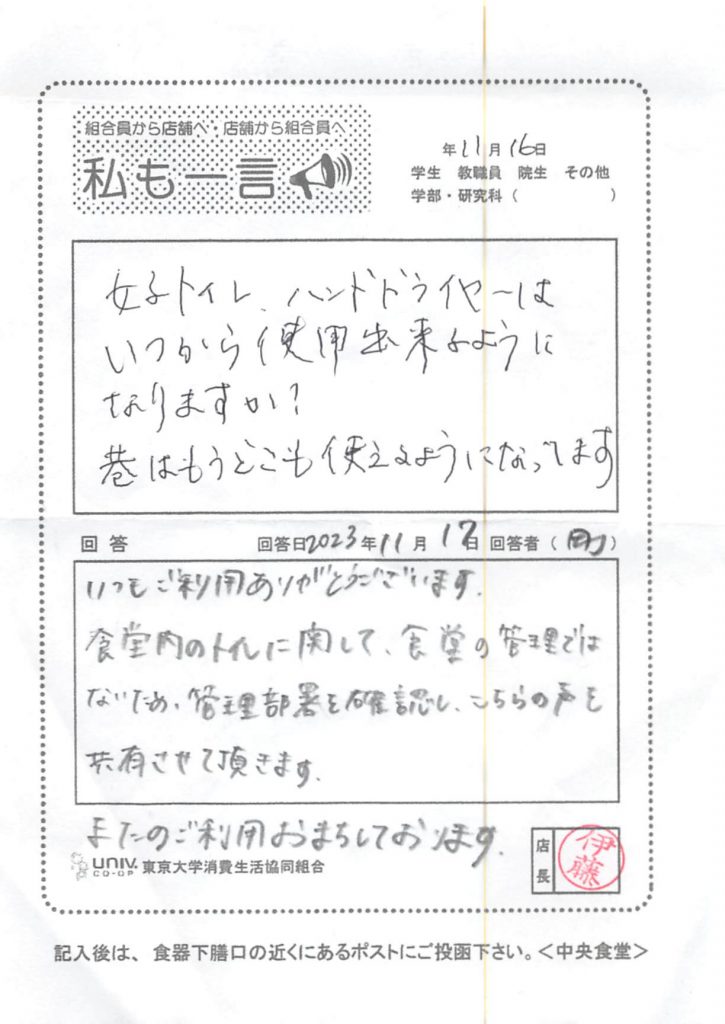 組合員から店舗へ・店舗から組合員へ
私も一言
年11月16日
学生 教職員 院生 その他
学部・研究科（ ）
女子トイレ、ハンドドライヤーは
いつから使用出来るように
なりますか?
巷はもうどこも使えるようになってます
回答 回答日2023年11月17日 回答者（剛）
いつもご利用ありがとうございます.
食堂内のトイレに関して、食堂の管理では
ないため、管理部署を確認し、こちらの声を
共有させて頂きます.
またのご利用おまちしております.
UNIV. CO-OP 東京大学消費生活協同組合
店長 伊藤
記入後は、食器下膳口の近くにあるポストにご投函下さい。＜中央食堂＞